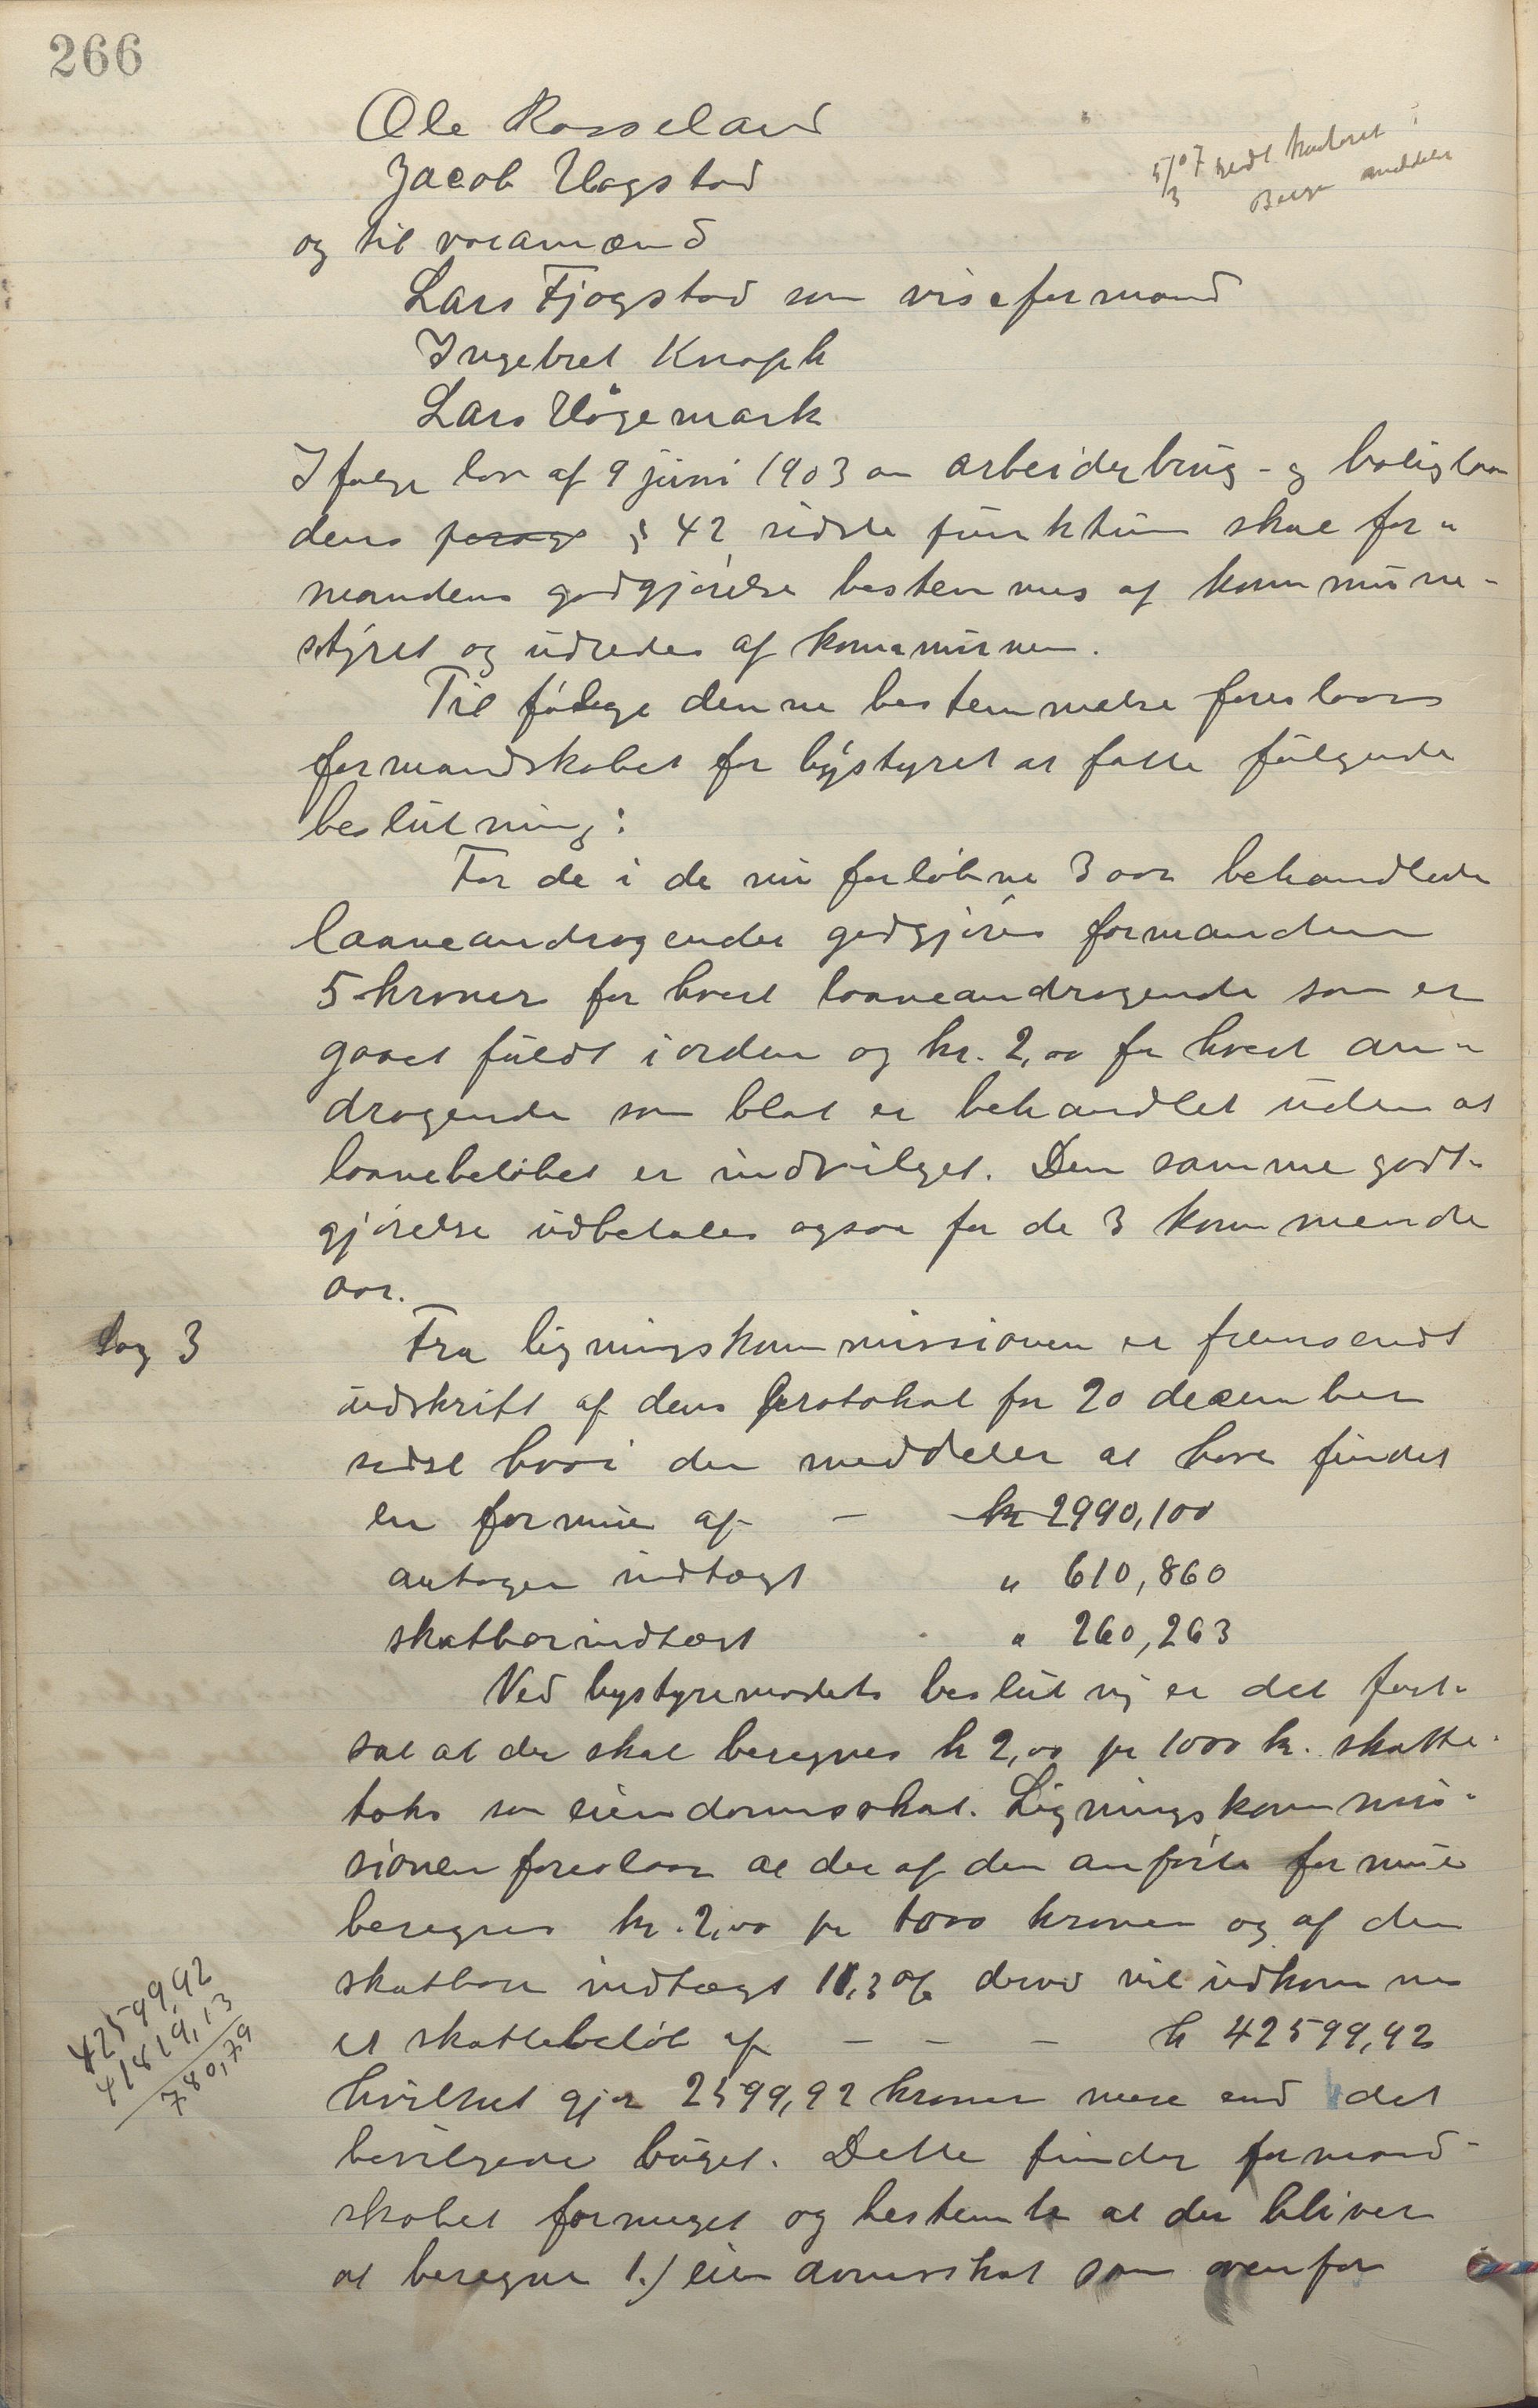 266
Ole Rosseland
Jacob Hagstad
og til varamænd
Lars Fjogstad som viseformand
Ingebret Knoph
Lars Högemark
5/3 07
Ifølge lov af 9 juni 1903 om arbeiderbrug- og boliglaan
dens parag § 42 sidste punktum skal for-
mandens godgjørelse bestemmes af kommune-
styret og udredes af kommunen.
Til følge denne bestemmelse foreslaar
formandskabet for bystyret at fatte følgende
beslutning:
For de i de nu forløbne 3 aar behandlede
laaneandragender godgjøres formanden
5 kroner for hvert laaneandragende som er
gaaet fuldt iorden og kr. 2,00 for hvert an-
dragende som blot er behandlet uden at
laanebeløbet er indvilget. Den samme godt-
gjørelse udbetales ogsaa for de 3 kommende
aar.
Sag 3
Fra ligningskommissionen er fremsendt
udskrift af dens protokol for 20 december
sidst hvori den meddeler at have fundet
en formue af - kr 2990,100
antagen indtægt " 610,860
skatbar indtægt " 260,263
Ved bystyremødets beslutng er det fast-
sat at der skal beregnes kr 2,00 pr 1000 kr. skatte-
taks som eiendomsskat. Ligningskommis-
sionen foreslaar at der af den anførte formue
beregnes kr. 2,00 pr 1000 kroner og af den
skatbare indtægt 11,3 % derved vil udkomme
et skattebeløb af - - - kr 42599,92
hvilket gjør 2599,92 kroner mere end det
bevilgede buget. Dette finder formand-
skabet formeget og bestemte at der bliver
at beregne 1.) eiendomsskat som ovenfor
42599,92
41819,13
780,79